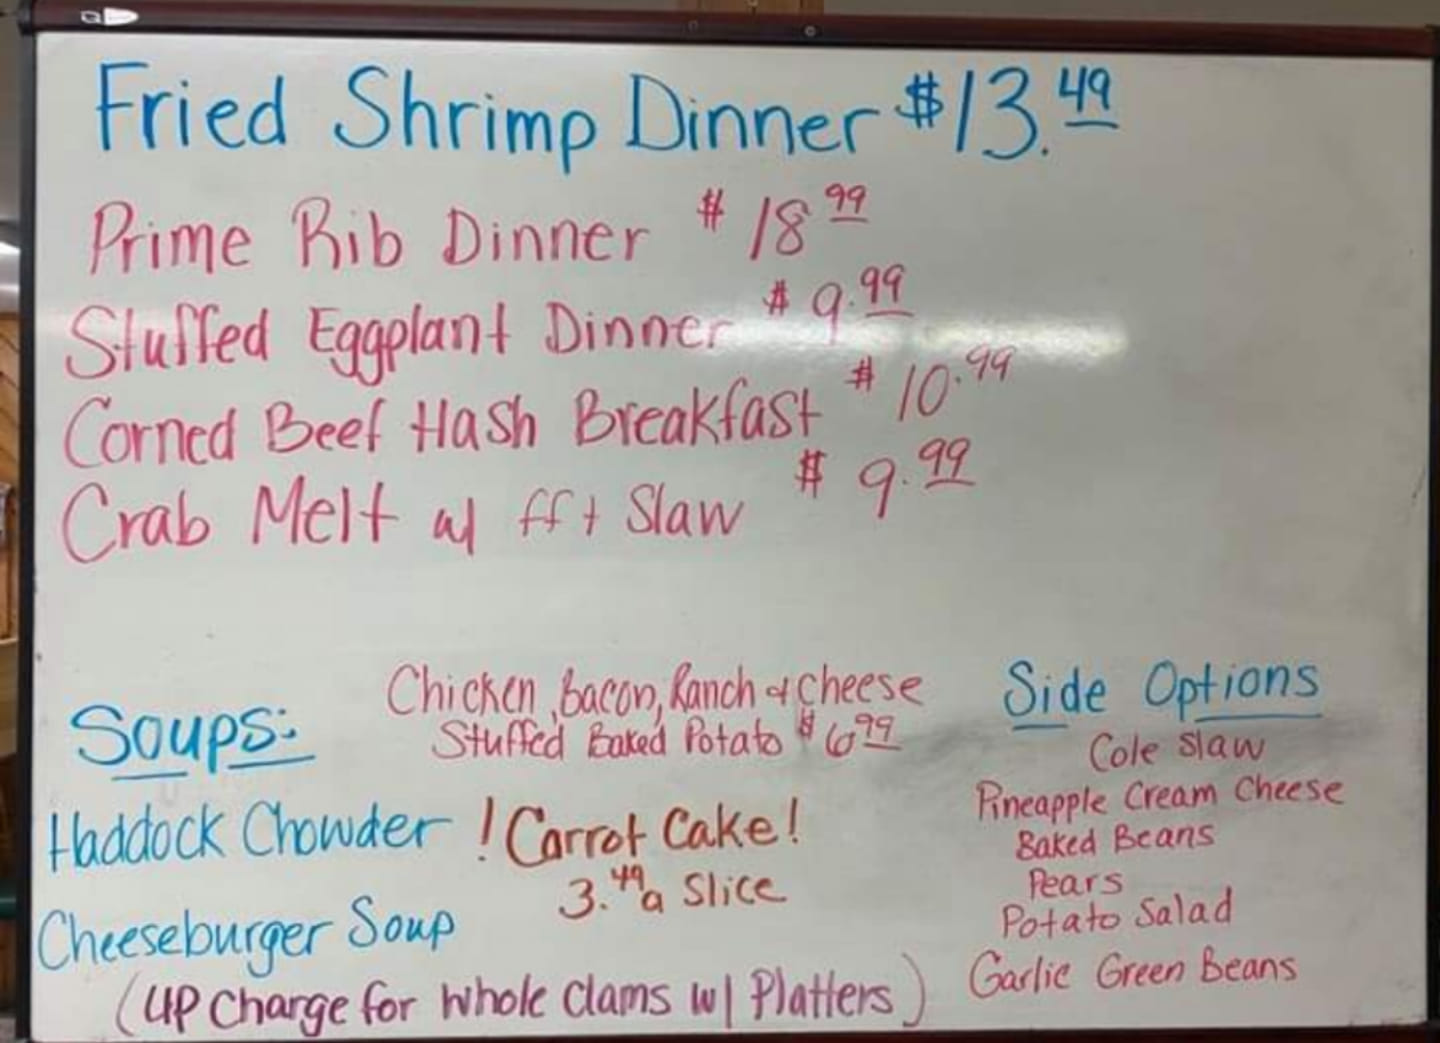 Fried Shrimp Dinner $13.49
Prime Rib Dinner $18 99
Stuffed Eggplant Dinner $9.99
Corned Beef Hash Breakfast $10.99
Crab Melt w/ ff + Slaw $9.99
Soups:
Haddock Chowder
Cheeseburger Soup
Chicken, Bacon, Ranch + Cheese
Stuffed Baked Potato $6 99
! Carrot Cake!
3.49 a Slice
(UP Charge for Whole Clams w/ Platters)
Side Options
Cole Slaw
Pineapple Cream Cheese
Baked Beans
Pears
Potato Salad
Garlic Green Beans